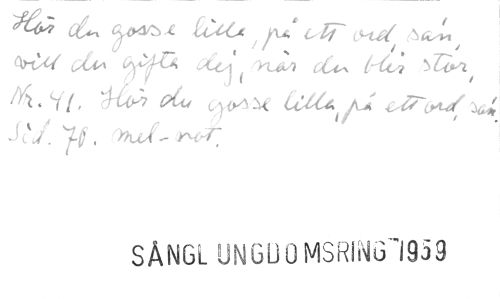 Hör du gosse lilla, på ett ord, sán,
vill du gifta dej, när du blir stor,
Nr. 41. Hör du gosse lilla, på ett ord, sán.
Sid. 70. mel-not.
SÅNGL UNGDOMSRING 1959